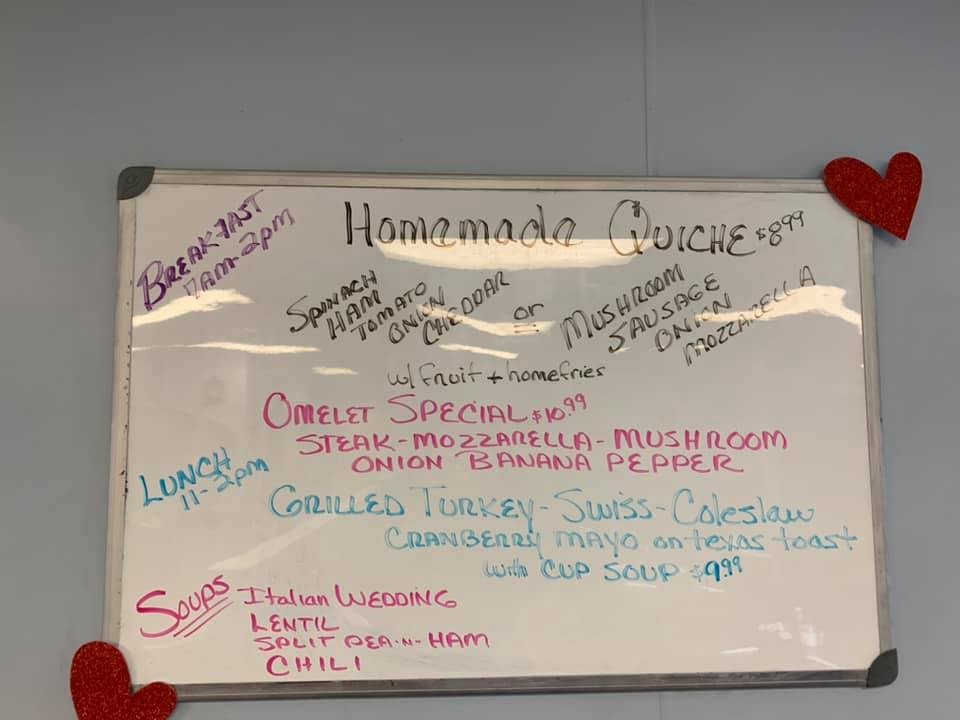 BREAKFAST
7AM-2pm
Homemade QUICHE $8.99
SPINACH
HAM
TOMATO
ONION
CHEDDAR
or
MUSHROOM
SAUSAGE
ONION
MOZZARELLA
w/ fruit + homefries
OMELET SPECIAL $10.99
STEAK-MOZZARELLA-MUSHROOM
ONION BANANA PEPPER
LUNCH
11-2pm
GRILLED TURKEY-SWISS-Coleslaw
CRANBERRY MAYO on texas toast
with CUP SOUP $9.99
SOUPS
Italian WEDDING
LENTIL
SPLIT PEA-N-HAM
CHILI